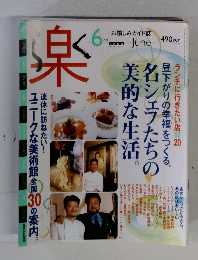 楽く
6
お愉しみガイド誌
June
490
ランチに行きたい店 20
昼下がりの幸福をつくる、
名シェフたちの
美的な生活。
連休に訪ねたい!
ユニークな美術館 全国30の案内